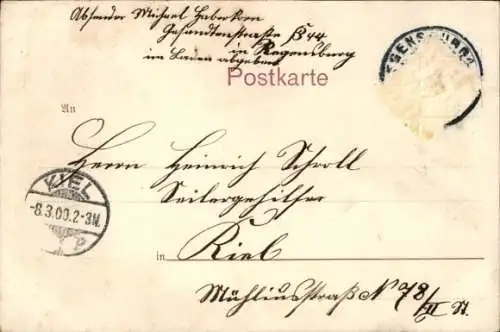 Absender Michael Haberkorn
Gesandtenstraße B 44
in Regensburg
im Laden abgeben
Postkarte
REGENSBURG
An
Herrn Heinrich Scholl
Seilergehilfe
KIEL
-8.3.00.2-3N.
P
in Kiel
Mühliusstraß N 78/II St.